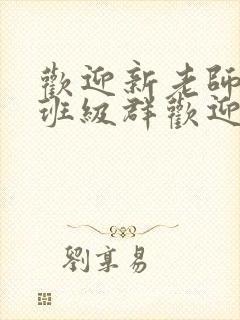 歡迎新老師
班級群歡迎
劉享易